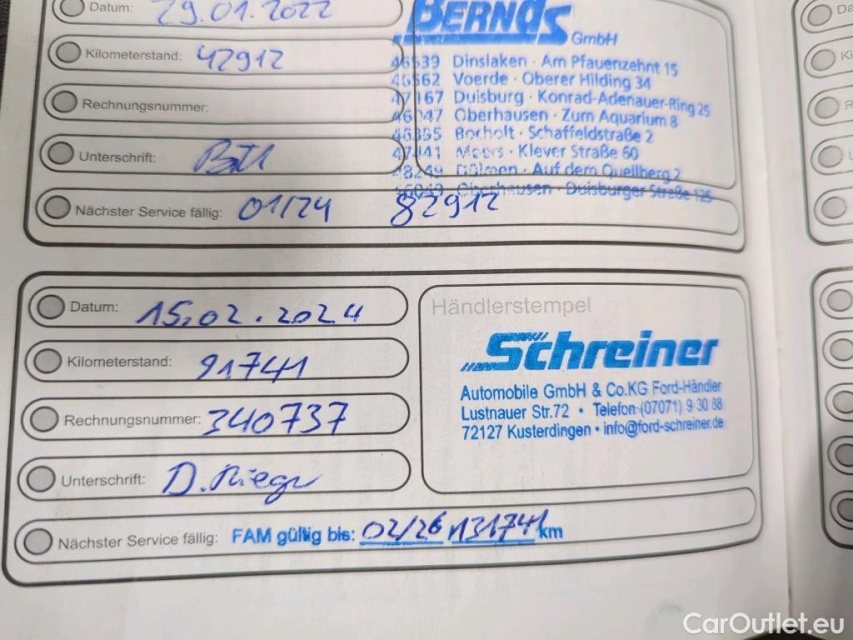 Datum: 29.01.2022
Kilometerstand: 42912
Rechnungsnummer:
Unterschrift:
Nächster Service fällig: 01/24 82912
BERNDS
GmbH
46539 Dinslaken · Am Pfauenzehnt 15
46562 Voerde · Oberer Hilding 34
47167 Duisburg · Konrad-Adenauer-Ring 25
46047 Oberhausen · Zum Aquarium 8
46395 Bocholt · Schaffeldstraße 2
47441 Moers · Klever Straße 60
48249 Dülmen · Auf dem Quellberg 2
46049 Oberhausen · Duisburger Straße 125
Datum: 15.02.2024
Kilometerstand: 91741
Rechnungsnummer: 340737
Unterschrift: D. Rieger
Nächster Service fällig: FAM gültig bis: 02/26 131741 km
Händlerstempel
Schreiner
Automobile GmbH & Co.KG Ford-Händler
Lustnauer Str.72 • Telefon (07071) 9 30 88
72127 Kusterdingen • info@ford-schreiner.de
CarOutlet.eu